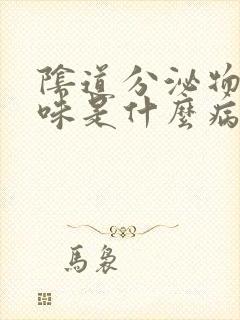 陰道分泌物
味是什麼病
馬裊